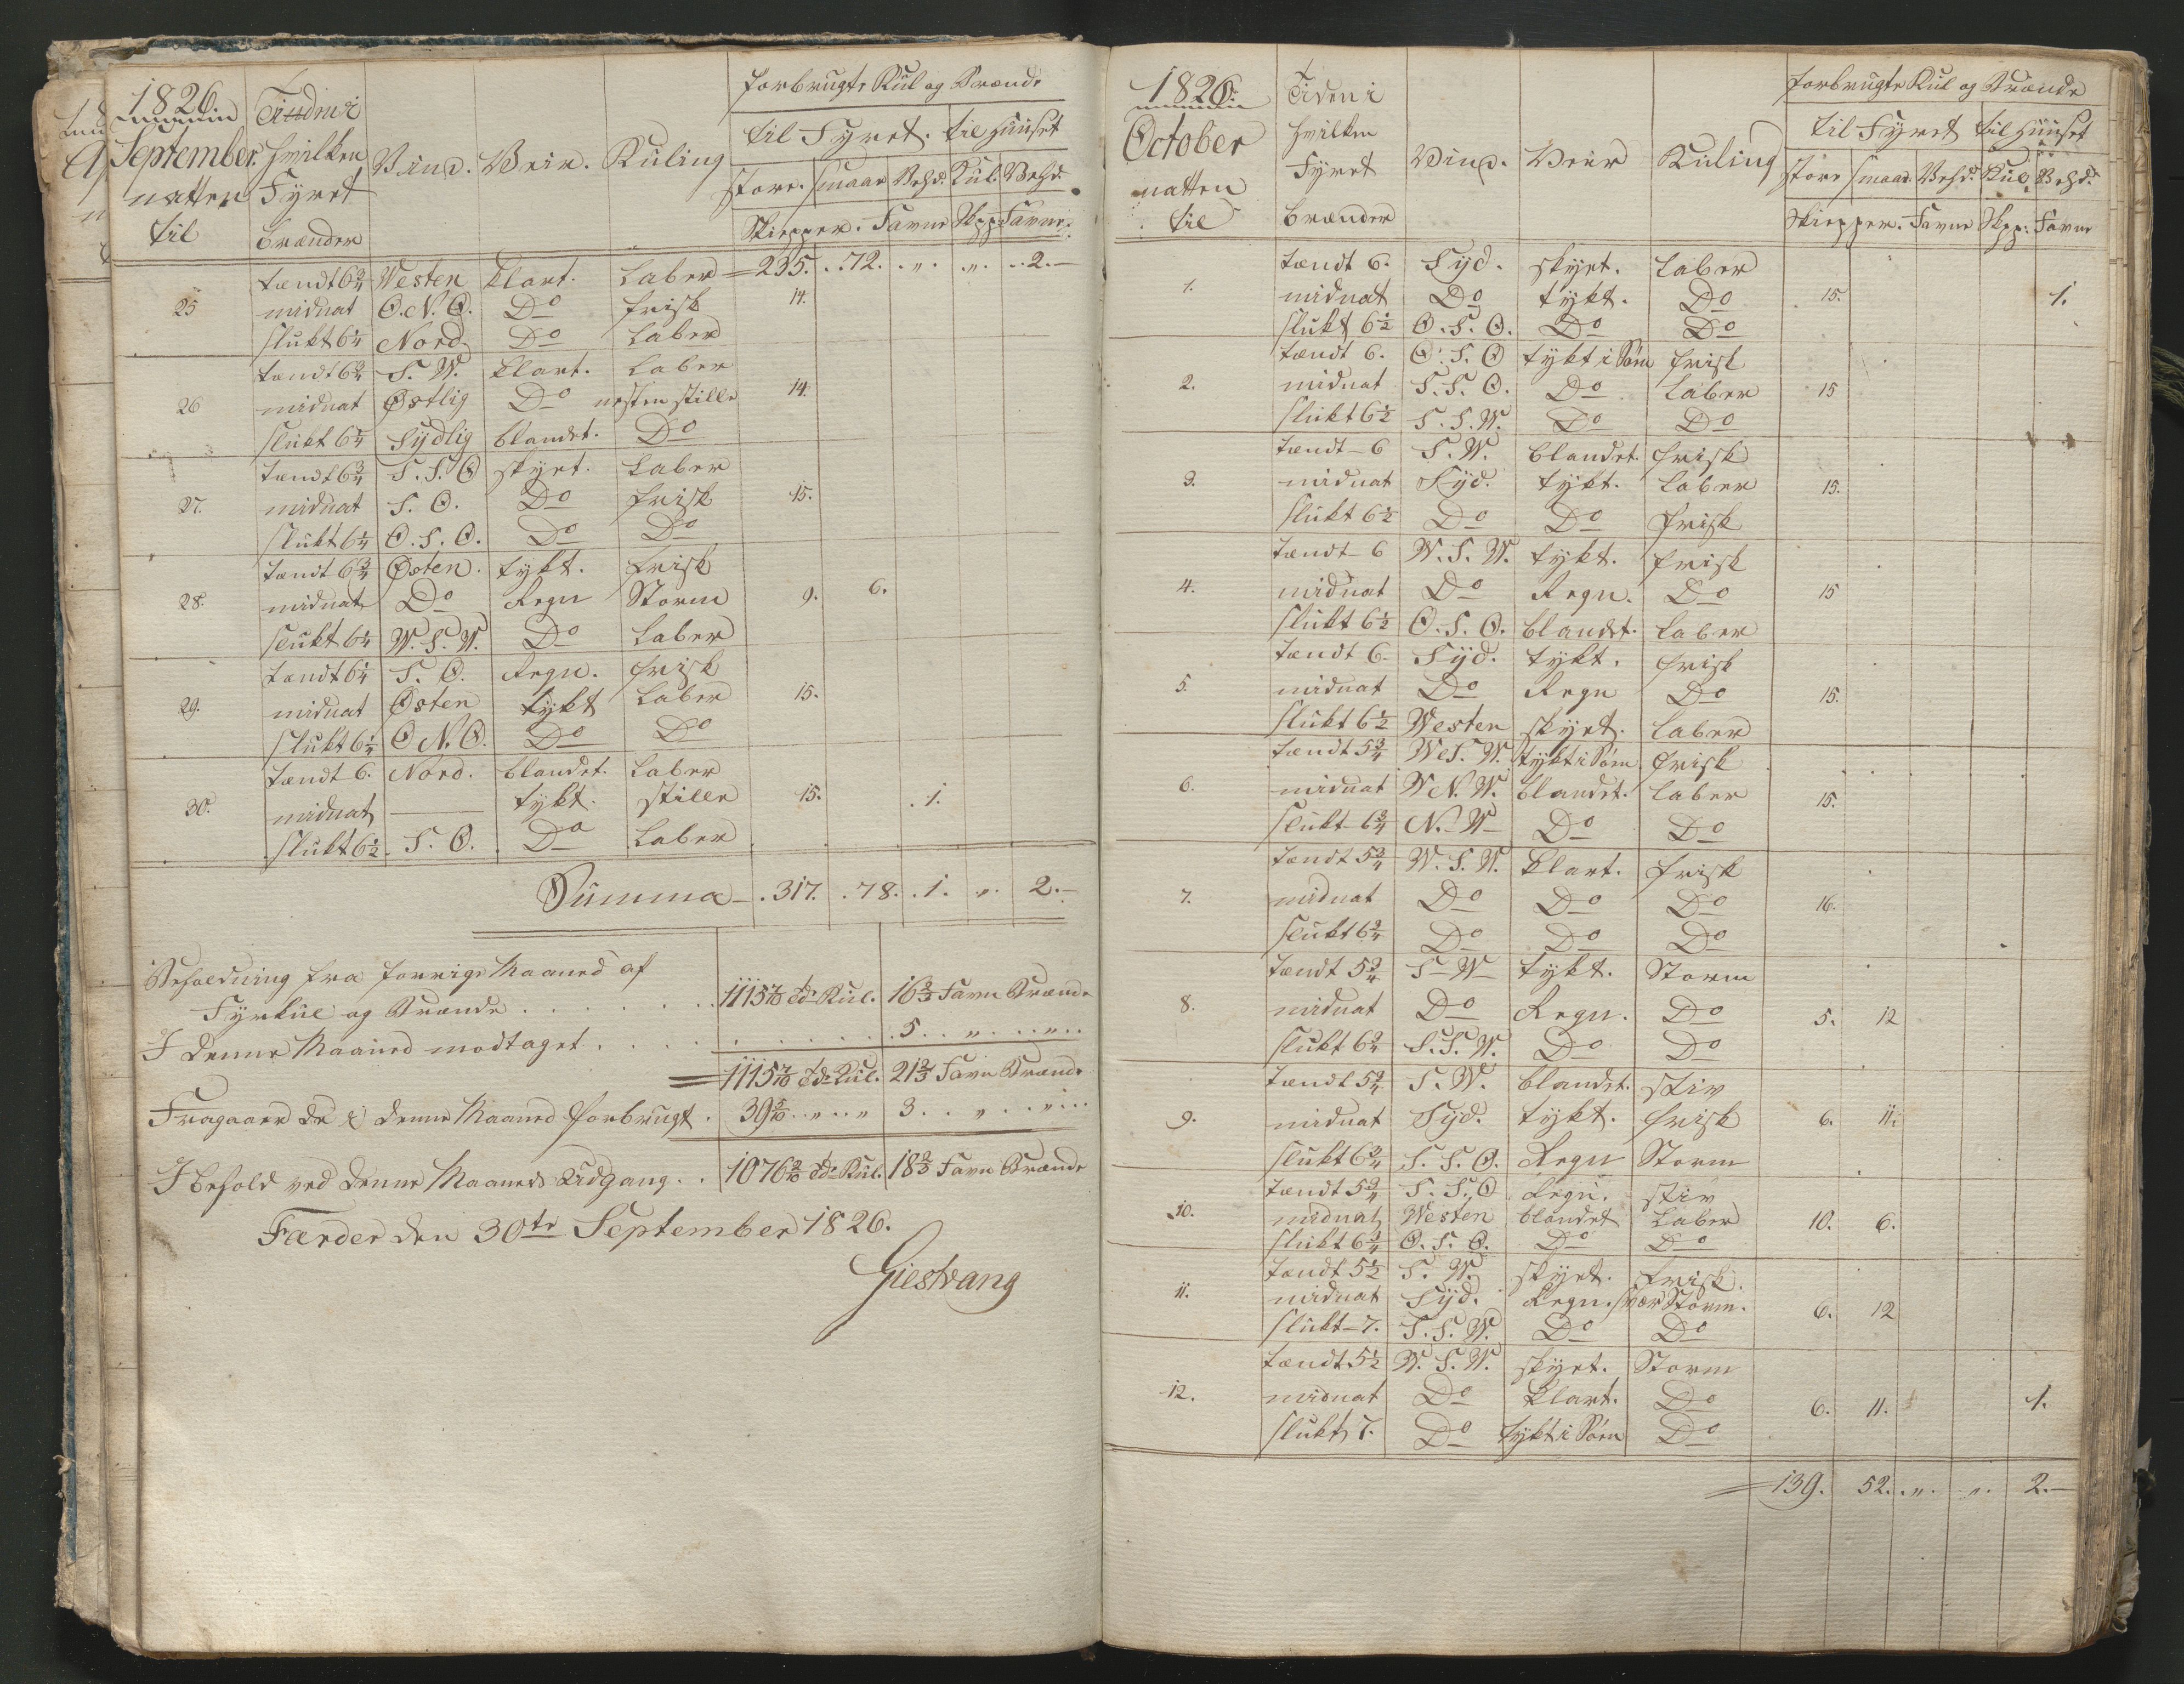 1826.
September.
natten
til
Tiden i
hvilken
Fyret
brænder
Vind. Veir. Kuling
forbrugte Kul og Brænde
til Fyret. til Huuset
store. smaae Vehd. Kul. Vehd.
Skiepper. Favne Skpp: Favne.
tændt 6 3/4 Westen klart. Laber 235. 72. " " 2.
25 midnat O.N.O. Do frisk 14.
slukt 6 1/4 Nord. Do Laber
tændt 6 3/4 S. W. klart. Laber
26 midnat Østlig Do nesten stille 14.
slukt 6 1/4 Sydlig blandet. Do
tændt 6 3/4 S. S. O skyet. Laber
27. midnat S. O. Do frisk 15.
slukt 6 1/4 O. S. O. Do Do
tændt 6 3/4 Østen. tykt. frisk
28. midnat Do Regn Storm 9. 6.
slukt 6 1/4 W. S. W. Do Laber
tændt 6 1/4 S. O. Regn. frisk
29. midnat Østen tykt Laber 15.
slukt 6 1/4 O N. O. Do Do
tændt 6. Nord. blandet. Laber
30. midnat — tykt. stille 15. 1.
slukt 6 1/2 S. O. Do Laber
Summa 317. 78. 1. " 2.
Beholdning fra forrige Maaned af
Fyrkul og Brænde . . . . 1115 7/10 Tdr Kul. 16 2/3 Favn Brænde
I denne Maaned modtaget . . . . 5 . . " . . " . .
1115 7/10 Tdr Kul. 21 2/3 Favn Brænde
Fragaaer de i denne Maaned forbrugt. 39 5/10 . . " . . " 3 . . " . . " . .
I behold ved denne Maaneds Udgang . . 1076 2/10 Tdr Kul. 18 2/3 Favn Brænde
Færder den 30te September 1826.
Giestvang
1826.
October
natten
til
Tiden i
hvilken
Fyret
brænder
Vind. Veir Kuling
forbrugte Kul og Brænde
til Fyret til Huuset
store smaae Vehd. Kul. Vehd.
Skiepper. Favne Skpp: Favne
tændt 6. Syd. skyet. Laber
1. midnat Do tykt. Do 15. 1.
slukt 6 1/2 O. S. O. Do Do
tændt 6. O. S. O tykt i Søen frisk
2. midnat S. S. O. Do Laber 15
slukt 6 1/2 S. S. W. Do Do
tændt 6 S. W. blandet. frisk
3. midnat Syd. tykt. Laber 15.
slukt 6 1/2 Do Do frisk
tændt 6 W. S. W. tykt. frisk
4. midnat Do Regn. Do 15
slukt 6 1/2 O. S. O. blandet. Laber
tændt 6. Syd. tykt. frisk
5. midnat Do Regn Do 15.
slukt 6 1/2 Westen skyet. Laber
tændt 5 3/4 W S. W. tykt i Søen frisk
6. midnat W N. W. blandet. Laber 15.
slukt 6 3/4 N. W Do Do
tændt 5 3/4 W. S. W. klart. frisk
7. midnat Do Do Do 16.
slukt 6 3/4 Do Do Do
tændt 5 3/4 S W tykt. Storm
8. midnat Do Regn. Do 5. 12
slukt 6 3/4 S. S. W. Do Do
tændt 5 3/4 S. W. blandet. stiv
9. midnat Syd. tykt. frisk 6. 11.
slukt 6 3/4 S. S. O. Regn Storm
tændt 5 3/4 S. S. O Regn. stiv
10. midnat Westen blandet Laber 10. 6.
slukt 6 3/4 O. S. O. Do Do
tændt 5 1/2 S. W. skyet. frisk.
11. midnat Syd. Regn. svær Storm. 6. 12
slukt 7. S. S. W. Do Do
tændt 5 1/2 W. S. W. skyet. Storm
12. midnat Do klart. Do 6. 11. 1.
slukt 7. Do tykt i Søen Do
139. 52. " " 2.